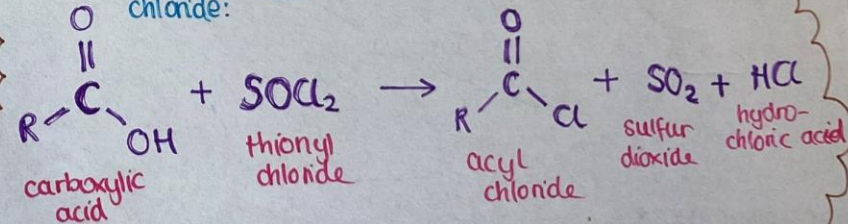 chloride:
O O
|| ||
R-C + SOCl₂ → R C + SO₂ + HCl
OH Cl
carboxylic acid
thionyl chloride
acyl chloride
sulfur dioxide
hydro-
chloric acid